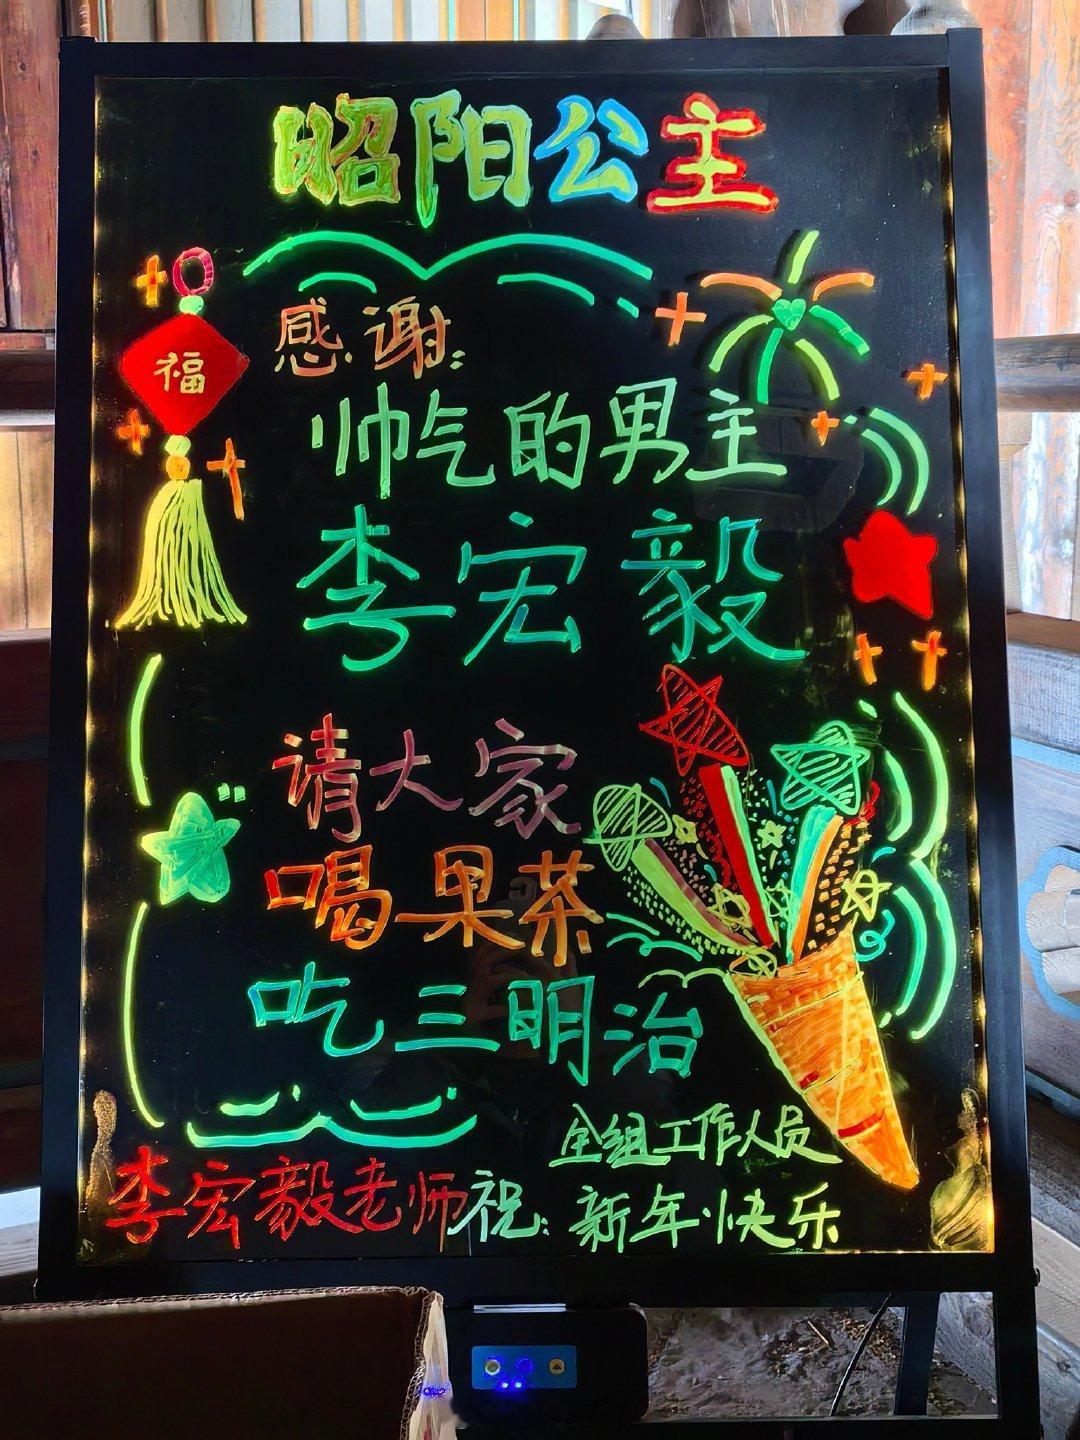 昭阳公主
福
感谢:
帅气的男主
李宏毅
请大家
喝果茶
吃三明治
全组工作人员
李宏毅老师祝:新年快乐